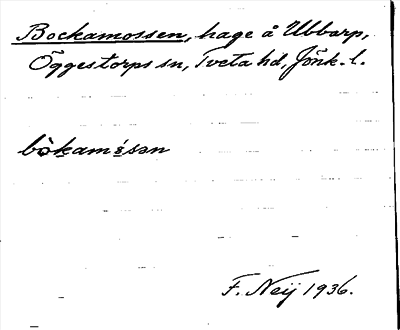 Bockamossen, hage å Ubbarp,
Öggestorps sn, Tveta hd, Jönk. l.
F. Neij 1936.